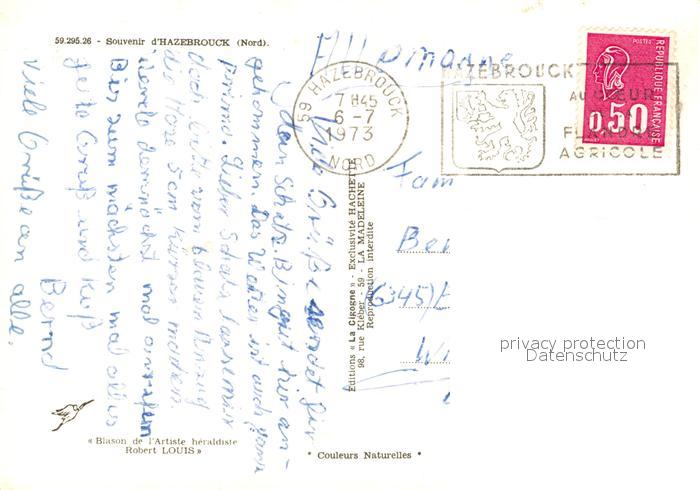 59.295.26 - Souvenir d'HAZEBROUCK (Nord).
Allemagne
59 HAZEBROUCK
7 H45
6-7
1973
NORD
HAZEBROUCK
AU CŒUR
FLANDRE
AGRICOLE
POSTES
REPUBLIQUE FRANCAISE
0,50
Fam
Ber
(6345)
Wi
Viele Grüße sendet Dir
Mein Schatz! Bin gut hier an-
gekommen. Das Wetter ist auch ganz
prima. Lieber Schatz
doch bitte vom blauen Anzug
die Hose 5 cm kürzer machen.
werde demnächst mal anrufen
Bis zum nächsten mal alles
Gute Gruß und Kuß
Bernd
Viele Grüße an alle.
Editions « La Cigogne » - Exclusivité HACHETTE
98, rue Kléber - 59 - LA MADELEINE
Reproduction interdite
« Blason de l'Artiste héraldiste
Robert LOUIS »
* Couleurs Naturelles *
privacy protection
Datenschutz